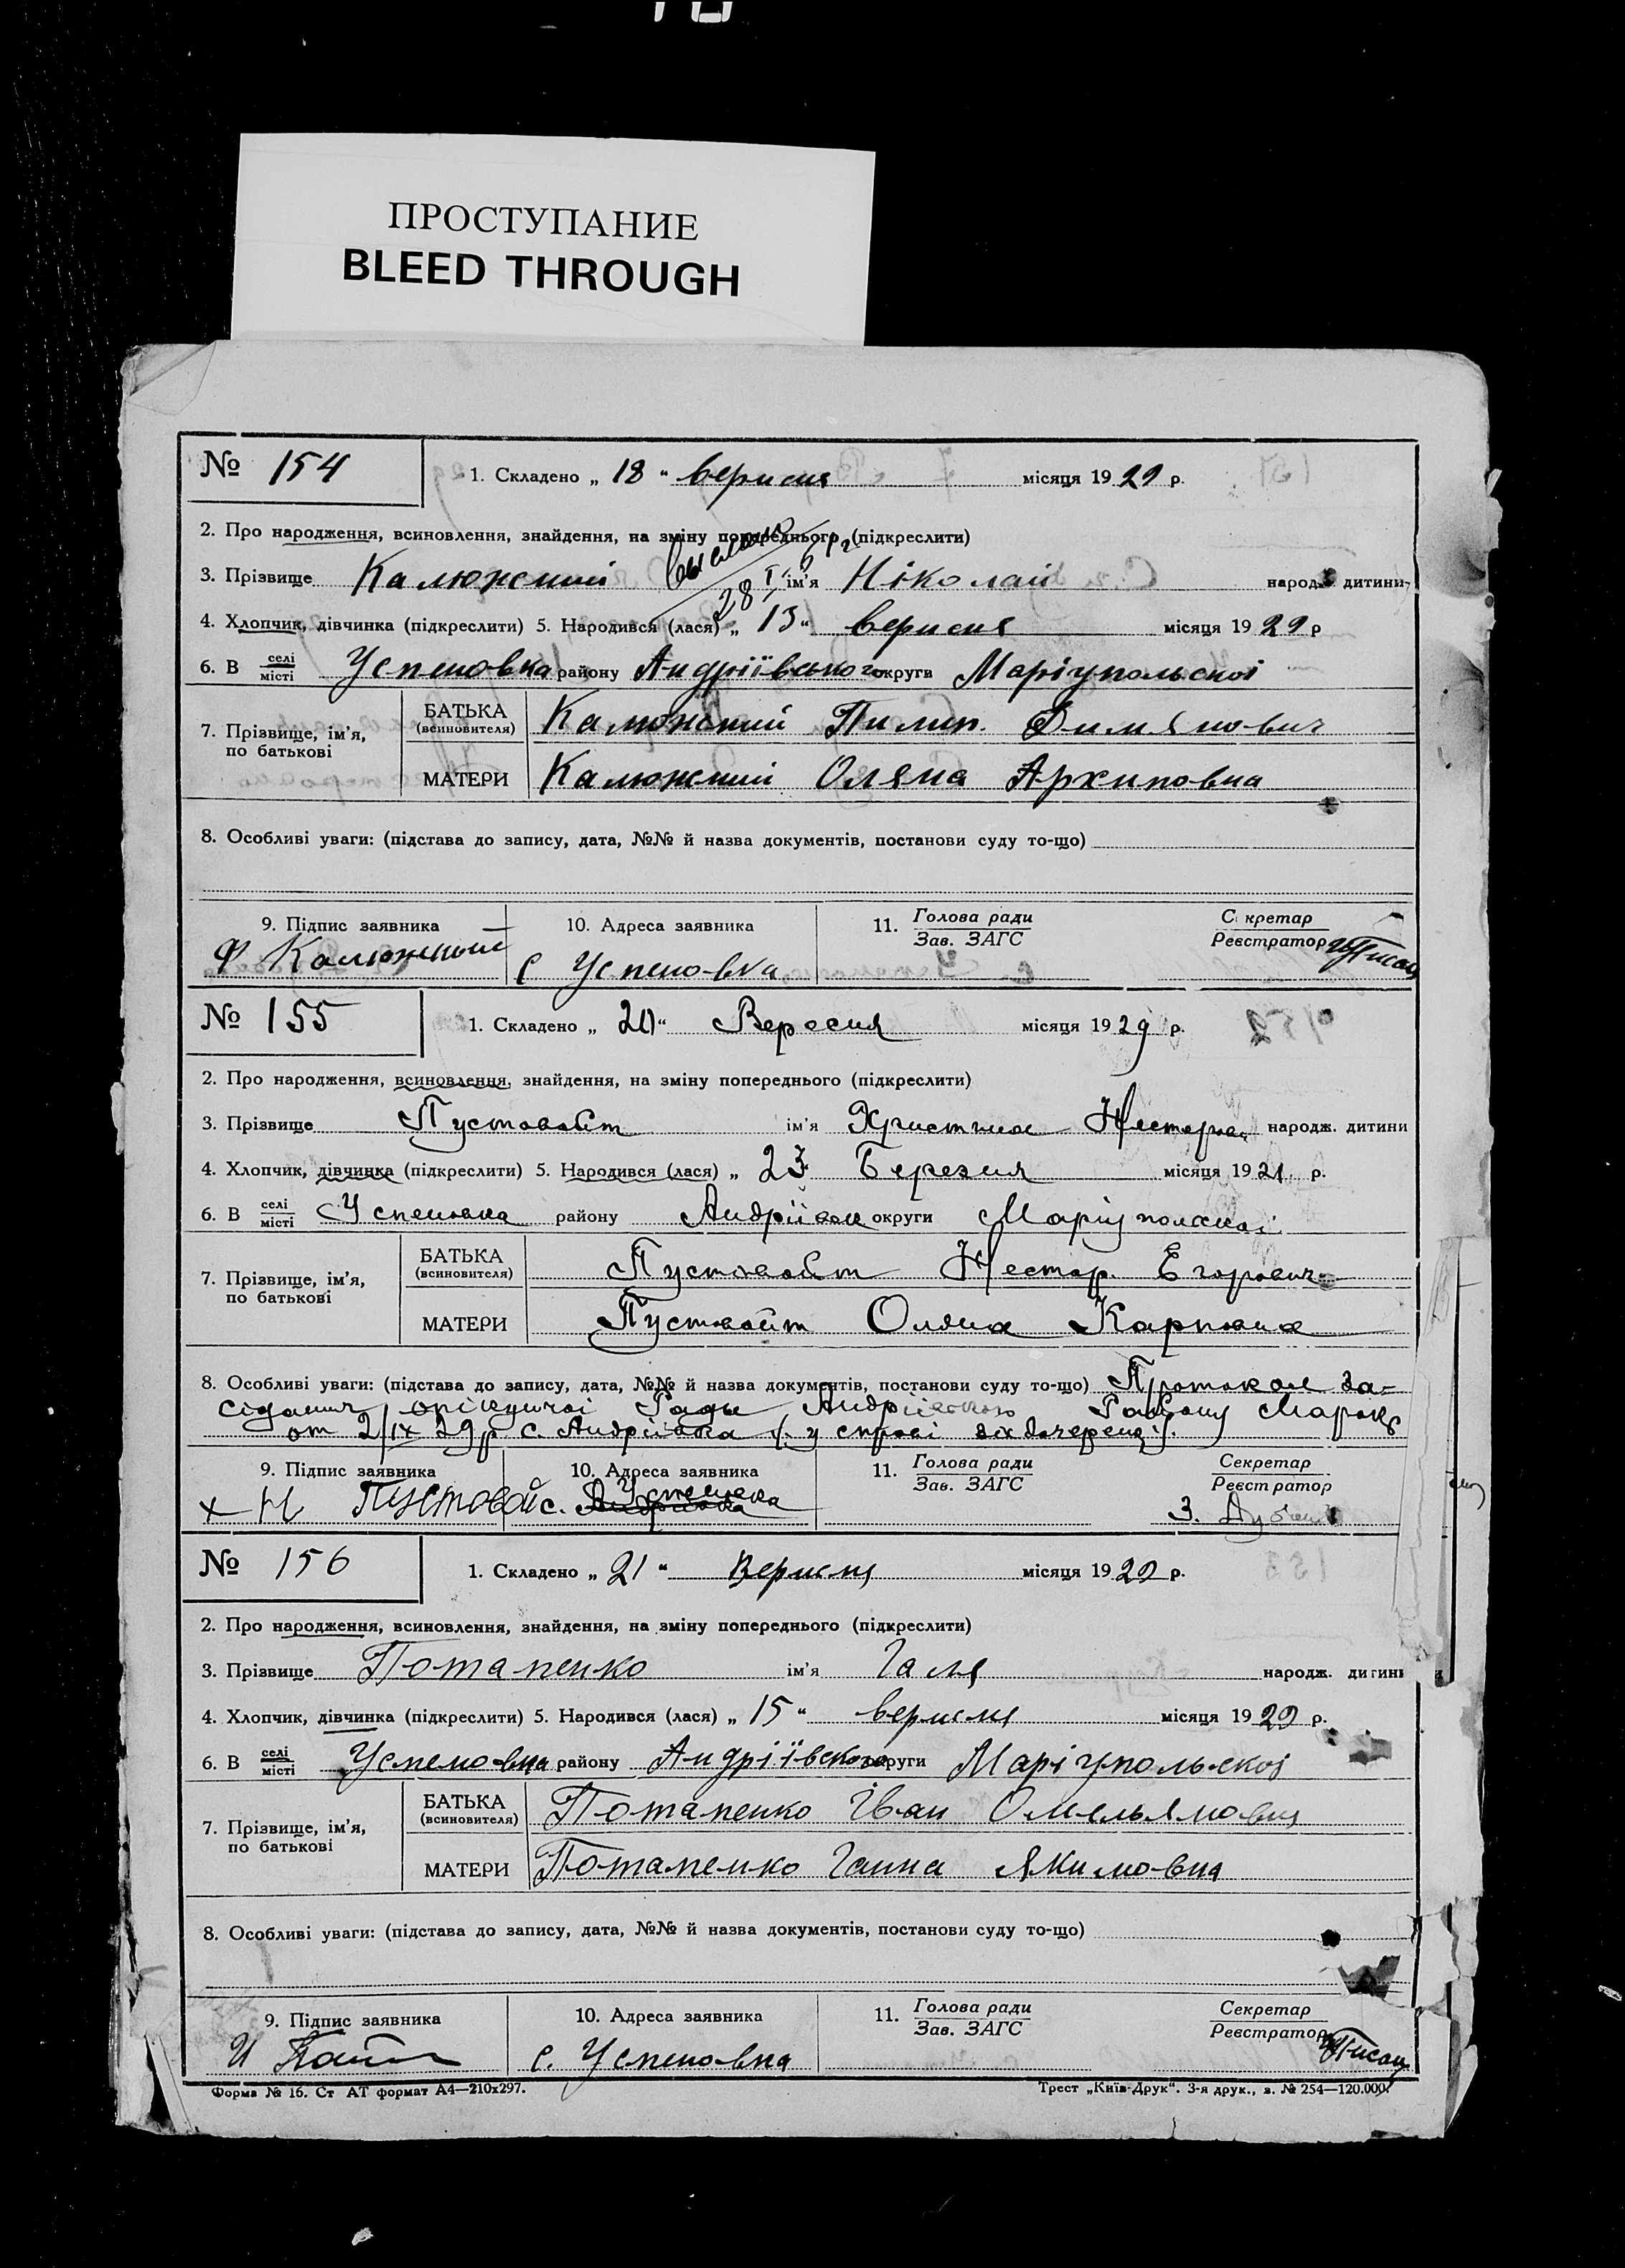 ПРОСТУПАНИЕ
BLEED THROUGH
№ 154 1. Складено „ 18 “ верисня місяця 19 29 р.
2. Про народження, всиновлення, знайдення, на зміну попереднього (підкреслити)
3. Прізвище Калюжний ім’я Ніколай народж. дитини
4. Хлопчик, дівчинка (підкреслити) 5. Народився (лася) „ 13 “ верисня місяця 19 29 р
6. В селі місті Успеновка району Андріївського округи Маріупольскоі
7. Прізвище, ім’я, по батькові БАТЬКА (всиновителя) Калюжний Пилип. Димянович
МАТЕРИ Калюжний Оляна Архиповна
8. Особливі уваги: (підстава до запису, дата, №№ й назва документів, постанови суду то-що)
9. Підпис заявника 10. Адреса заявника 11. Голова ради Зав. ЗАГС Секретар Реєстратор
Ф Калюжный с Успеновка
№ 155 1. Складено „ 20 “ Вересня місяця 19 29 р.
2. Про народження, всиновлення, знайдення, на зміну попереднього (підкреслити)
3. Прізвище Пустовойт ім’я Христина народж. дитини
4. Хлопчик, дівчинка (підкреслити) 5. Народився (лася) „ 23 Березня місяця 19 21 р.
6. В селі місті Успеновка району округи Маріупольскоі
7. Прізвище, ім’я, по батькові БАТЬКА (всиновителя) Пустовойт Нестор. Егорович
МАТЕРИ Пустовойт Оляна Карповна
8. Особливі уваги: (підстава до запису, дата, №№ й назва документів, постанови суду то-що) Протокол за-
сідання опікунчоі Ради
от 2/IX 29 р с. Андріївка (: у справі
9. Підпис заявника 10. Адреса заявника 11. Голова ради Зав. ЗАГС Секретар Реєстратор
х Н Пустовой с. Андріівка Успеновка З.
№ 156 1. Складено „ 21 “ Верисня місяця 19 29 р.
2. Про народження, всиновлення, знайдення, на зміну попереднього (підкреслити)
3. Прізвище Потапенко ім’я Галя народж. дитини
4. Хлопчик, дівчинка (підкреслити) 5. Народився (лася) „ 15 “ верисня місяця 19 29 р.
6. В селі місті Успеновка району Андріївского округи Маріупольскоі
7. Прізвище, ім’я, по батькові БАТЬКА (всиновителя) Потапенко Іван Омельянович
МАТЕРИ Потапенко Ганна Якимовна
8. Особливі уваги: (підстава до запису, дата, №№ й назва документів, постанови суду то-що)
9. Підпис заявника 10. Адреса заявника 11. Голова ради Зав. ЗАГС Секретар Реєстратор
с. Успеновка
Форма № 16. Ст АТ формат А4—210х297. Трест „Київ-Друк“. 3-я друк., з. № 254—120.000.